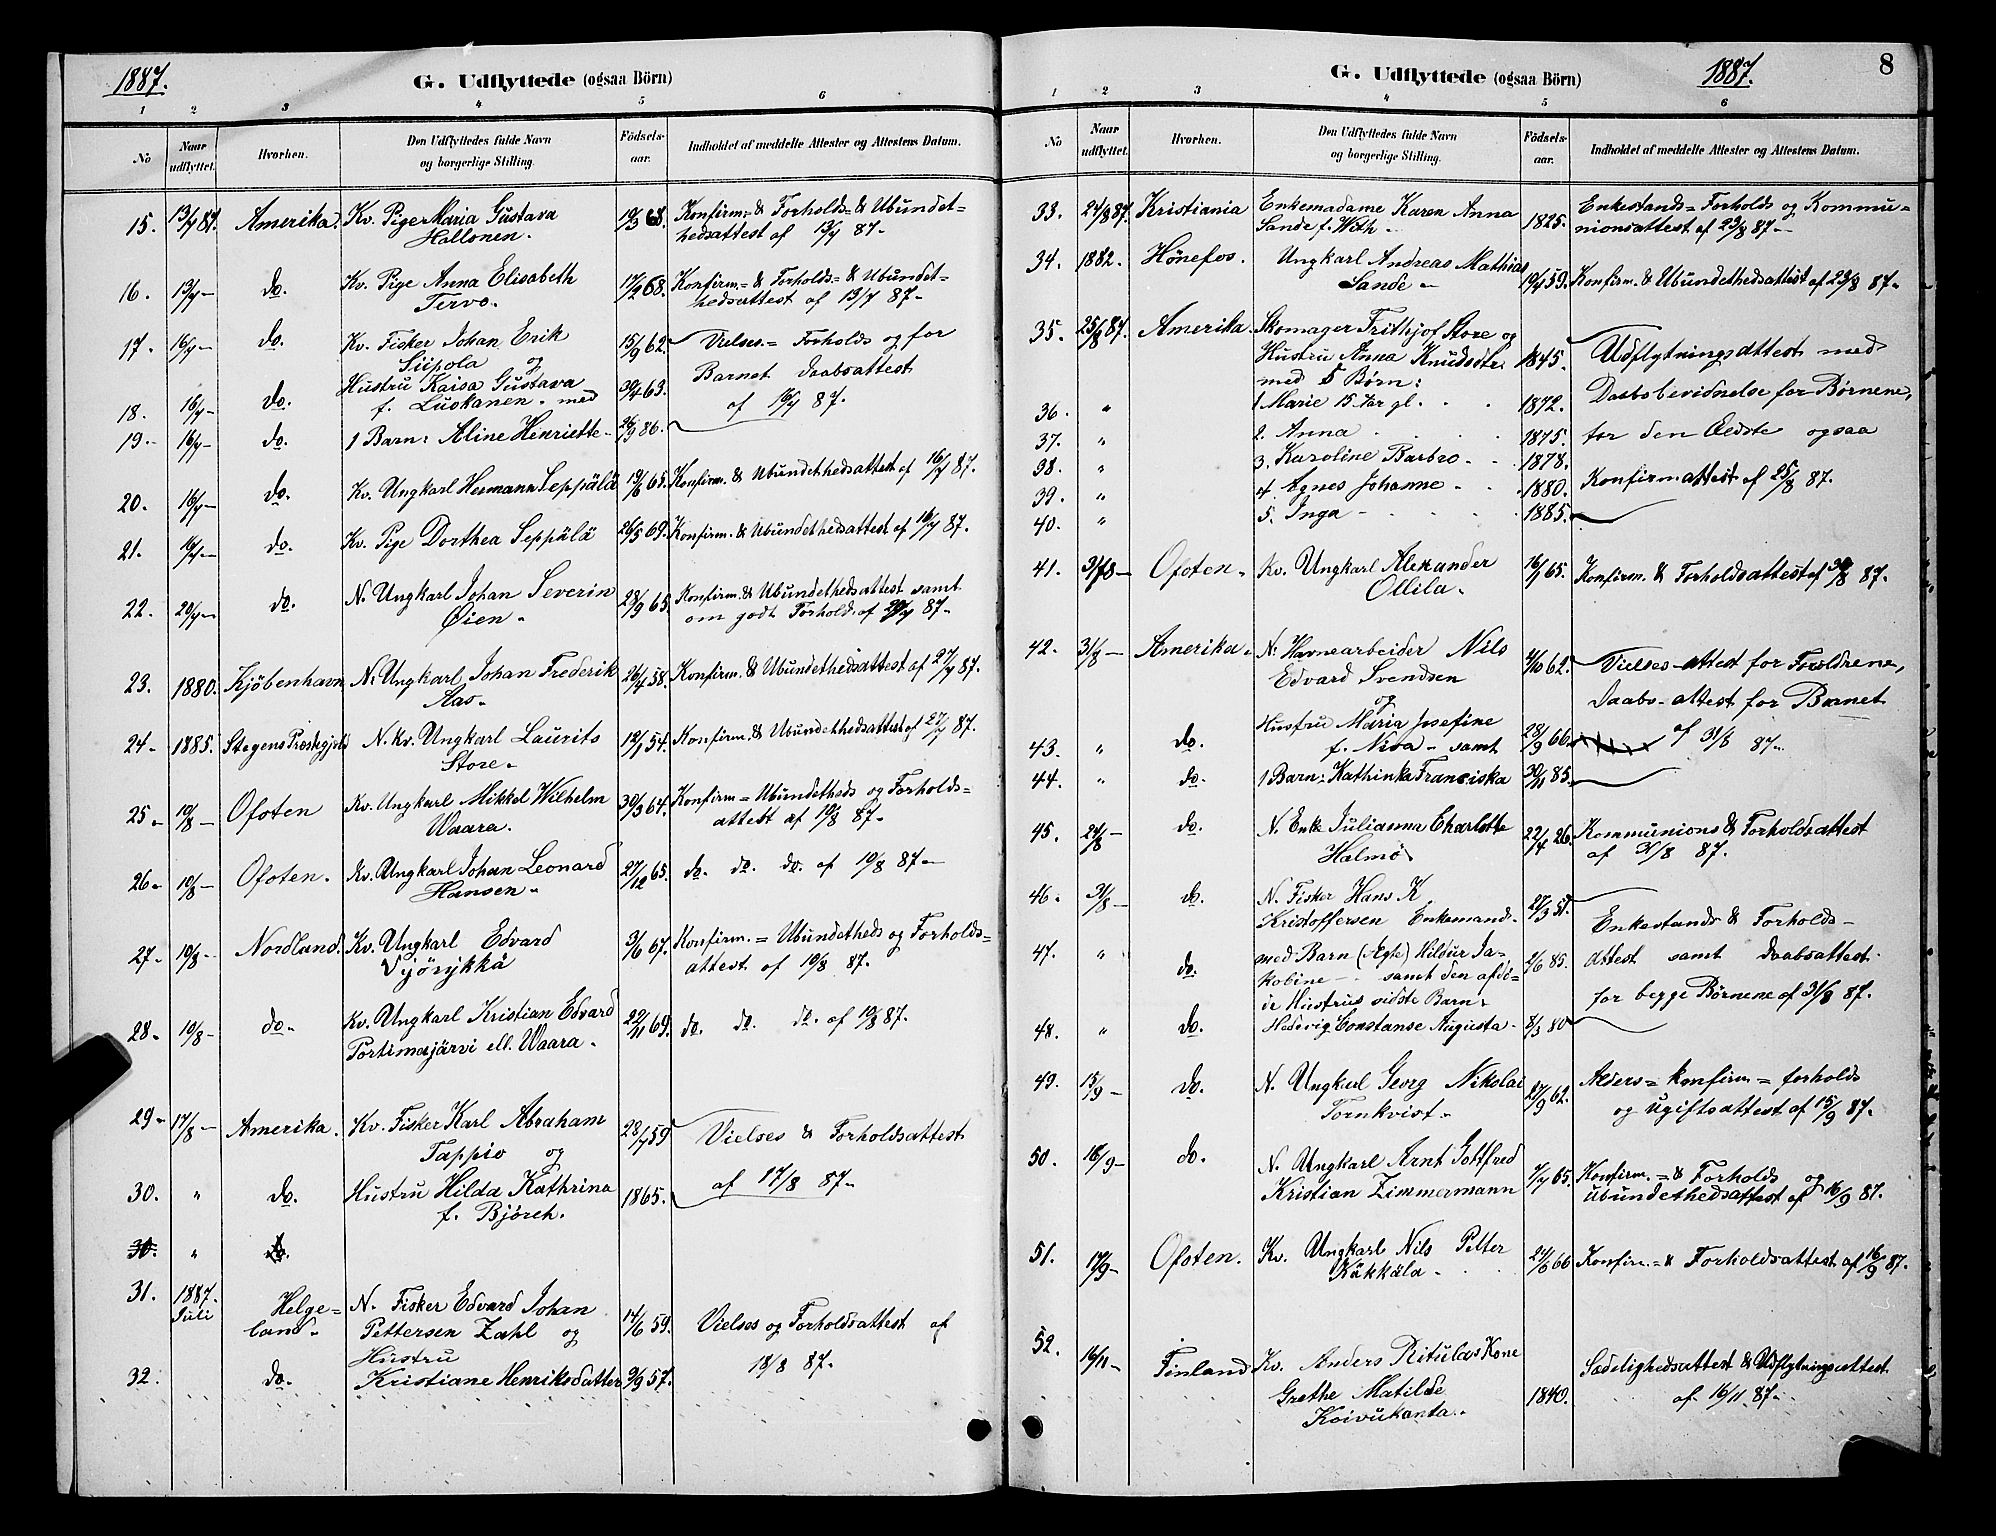 1887.
G. Udflyttede (ogsaa Börn)
1 2 3 4 5 6
No
Naar udflyttet.
Hvorhen.
Den Udflyttedes fulde Navn og borgerlige Stilling.
Födsels-aar.
Indholdet af meddelte Attester og Attestens Datum.
15. 13/7 87. Amerika. Kv. Pige Maria Gustava 19/3 68. Konfirm.- & Forholds- & Ubundet=
Hallonen. hedsattest af 13/7 87.
16. 13/7 do. Kv. Pige Anna Elisabeth 17/2 68. Konfirm.= & Forholds= & Ubundet=
Tervo. hedsattest af 13/7 87.
17. 16/7 do. Kv. Fisker Johan Erik 15/9 62. Vielses.= Forholds og for
Siipola og Barnet Daabsattest
18. 16/7 do. Hustru Kaisa Gustava 30/4 63. af 16/7 87.
f. Luskanen. med
19. 16/7 do. 1 Barn: Aline Henriette 26/9 86.
20. 16/7 do. Kv. Ungkarl Hermann Seppälä 19/6 65. Konfirm. & Ubundethedsattest af 16/7 87.
21. 16/7 do. Kv. Pige Dorthea Seppälä 26/5 69. Konfirm. & Ubundethedsattest af 16/7 87.
22. 20/7 do. N. Ungkarl Johan Severin 28/9 65. Konfirm. & Ubundethedsattest samt
Øien. om godt Forhold af 20/7 87.
23. 1880. Kjöbenhavn N. Ungkarl Johan Frederik 26/4 58. Konfirm. & Ubundethedsattest af 27/7 87.
Aas.
24. 1885. Stegens Præstegjeld N. kv. Ungkarl Laurits 12/1 54. Konfirm. & Ubundethedsattest af 27/7 87.
Store.
25. 10/8 Ofoten Kv. Ungkarl Mikkel Wilhelm 30/3 64. Konfirm= Ubundetheds og Forholds=
Waara. attest af 10/8 87.
26. 10/8 Ofoten. Kv. Ungkarl Johan Leonard 27/12 65. do. do. do. af 10/8 87.
Hansen.
27. 10/8 Nordland. Kv. Ungkarl Edvard 3/6 67. Konfirm.= Ubundetheds og Forholds=
Vyörykkä attest af 10/8 87.
28. 10/8 do. Kv. Ungkarl Kristian Edvard 22/11 69. do. do. do. af 10/8 87.
Portimojärvi ell. Waara.
29. 17/8 Amerika. Kv. Fisker Karl Abraham 28/7 59 Vielses & Forholdsattest
Tappio og af 17/8 87.
30. " do. Hustru Hilda Kathrina 1865.
f. Björch.
31. " do.
31. 1887. Juli Helge= N. Fisker Edvard Johan 14/6 59. Vielses og Forholdsattest af
land. Pettersen Zahl og 18/8 87.
Hustru
32. do. Kristiane Henriksdatter 9/9 57.
8
G. Udflyttede (ogsaa Börn)
1887.
1 2 3 4 5 6
No
Naar udflyttet.
Hvorhen.
Den Udflyttedes fulde Navn og borgerlige Stilling.
Födsels-aar.
Indholdet af meddelte Attester og Attestens Datum.
33. 24/8 87. Kristiania Enkemadame Karen Anna 1825. Enkestands= Forholds og Kommu=
Sande f. With. nionsattest af 23/8 87.
34. 1882. Hönefos. Ungkarl Andreas Mathias 19/4 59. Konfirm. & Ubundethedsattest af 23/8 87.
Sande
35. 25/8 87. Amerika. Skomager Frithjof Store og
Hustru Anna Knudsdtr. 1845. Udflytningsattest med
med 5 Börn: Daabsbevidnelse for Børnene,
36. " 1 Marie 15 Aar gl. 1872. for den Ældste ogsaa
37. " 2. Anna 1875. Konfirmattest af 25/8 87.
38. " 3. Karoline Barbro 1878.
39. " 4 Agnes Johanne 1880.
40. " 5. Inga 1885.
41. 31/8 Ofoten. Kv. Ungkarl Alexander 16/1 65. Konfirm. & Forholdsattest af 30/8 87.
Ollila.
42. 31/8 Amerika. N. Havnearbeider Nils 4/10 62. Vielses-attest for Forældrene,
Edvard Svendsen Daabs-attest for Barnet
og
43. " do. Hustru Maria Josefine 28/9 66. af 31/8 87.
f. Niva. samt
44. " do. 1 Barn: Kathinka Franciska 30/11 85.
45. 24/8 do. N. Enke Julianna Charlotte 22/4 26. Kommunions & Forholdsattest
Halmö af 31/8 87.
46. 31/8 do. N. Fisker Hans K. 27/3 51.
Kristoffersen Enkemand. Enkestands & Forholds-
47. " do. med Barn (Ægte) Hildur Ja- 2/6 85. attest samt Daabsattest
kobine samt den afdö= for begge Börnene af 31/8 87.
de Hustrus sidste Barn.
48. " do. Hedevig Constanse Augusta. 8/3 80
49. 15/9 do. N. Ungkarl Georg Nikolai 27/9 62. Alders= konfirm= forholds
Tornkvist. og ugiftsattest af 15/9 87.
50. 16/9 do. N. Ungkarl Arnt Gottfred 7/7 65. Konfirm.= & Forholds og
Kristian Zimmermann ubundethedsattest af 16/9 87.
51. 17/9 Ofoten. Kv. Ungkarl Nils Petter 24/6 66 Konfirm.= & Forholdsattest af 16/9 87.
Käkkäla.
52. 16/11 Finland Kv. Anders Ritulas Kone Sædelighedsattest & Udflytningsattest
Grethe Matilde 1840. af 16/11 87.
Koivukanta.